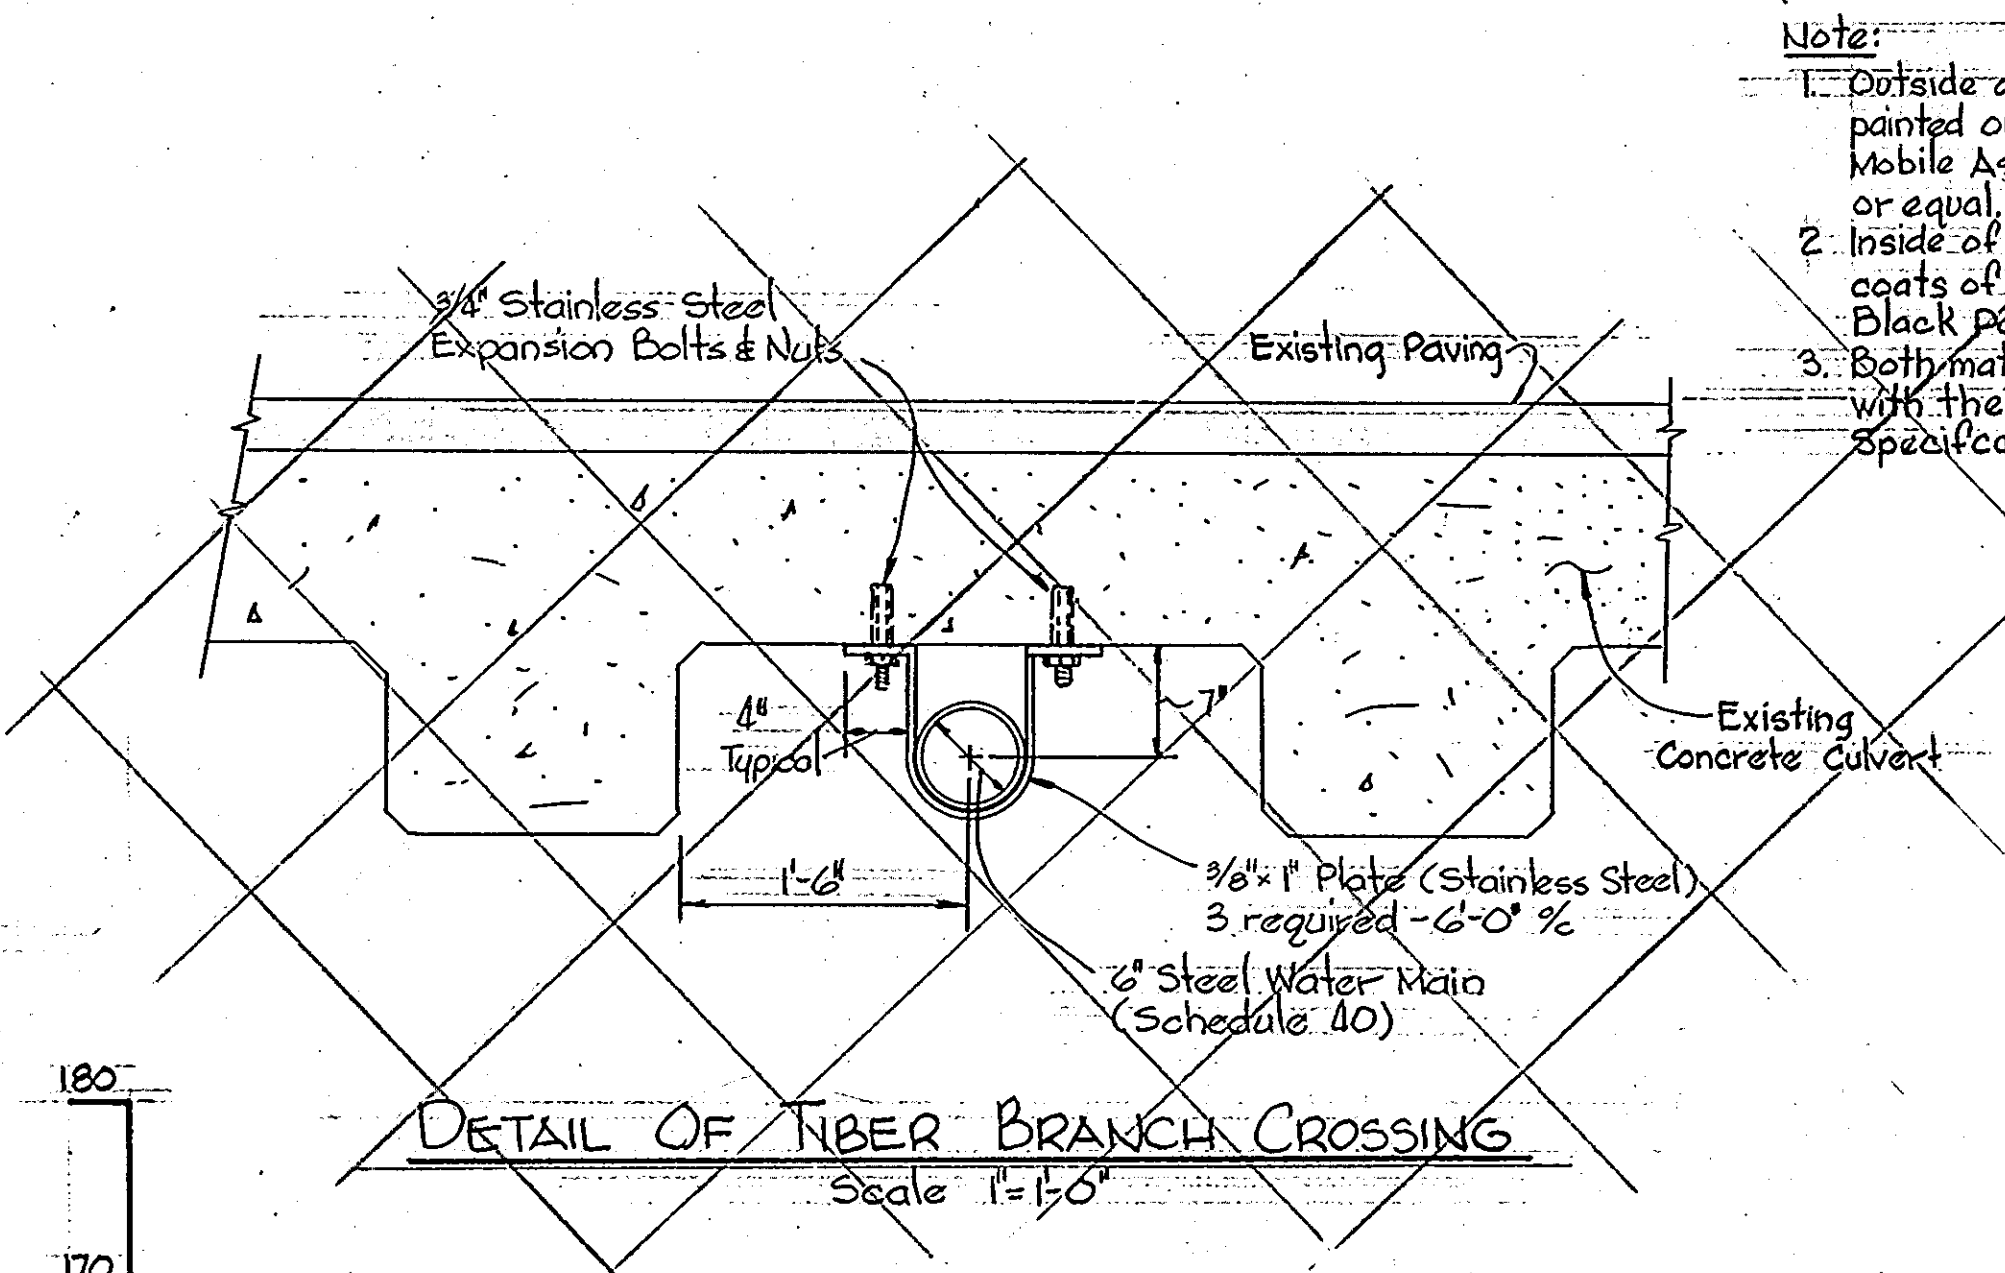 Note:
1. Outside
painted
Mobile
or equal.
2 Inside of
coats of
Black
3. Both
with the
3/4" Stainless Steel
Expansion Bolts & Nuts
Existing Paving
4"
Typical
7"
Existing
Concrete Culvert
1'-6"
3/8" x 1" Plate (Stainless Steel)
3 required - 6'-0" %c
6" Steel Water Main
(Schedule 40)
DETAIL OF TIBER BRANCH CROSSING
Scale 1" = 1'-0"
180
170